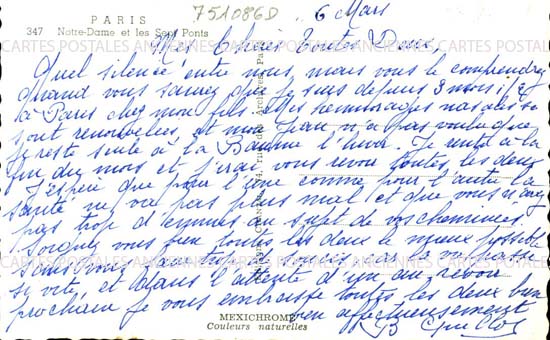 PARIS
347 Notre-Dame et les Sept Ponts
751086D
6 Mars
Mes Chères Toutes Deux
Quel silence entre nous, mais vous le comprendrez
Quand vous saurez que je suis depuis 3 mois 1/2
à Paris chez mon fils. Mes hémorragies nasales se
sont renouvelées, et mon Jean n'a pas voulu que
je reste seule à la Baume l'hiver. Je rentre à la
fin du mois et j'irai vous revoir toutes les deux
J'espère que pour l'une comme pour l'autre la
santé ne va pas plus mal et que vous n'avez
pas trop d'ennuis au sujet de vos cheminées
Soignez vous bien toutes les deux le mieux possible
se vite, et dans l'attente d'un au revoir
prochain je vous embrasse toutes les deux bien
bien affectueusement
MEXICHROME
Couleurs naturelles
CARTES POSTALES ANCIENNES